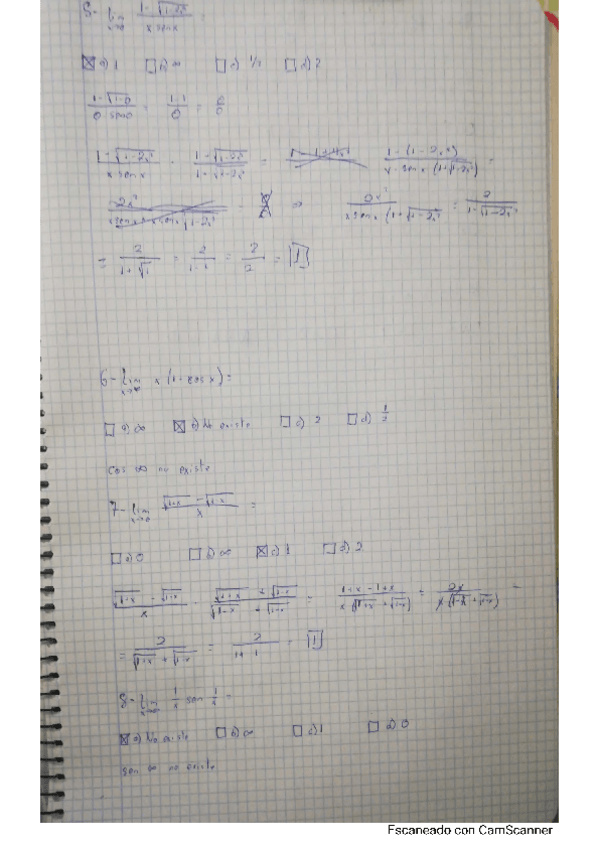 5- lim x→0 (1-√(1-2x²))/(x senx) =
☒ a) 1 ☐ b) ∞ ☐ c) 1/2 ☐ d) 2
(1-√(1-0))/(0 sen0) = (1-1)/0 = 0/0
(1-√(1-2x²))/(x senx) · (1-√(1-2x²))/(1+√(1-2x²)) = (1-(1-2x²))/(x·senx (1+√(1-2x²))) =
2x²/(x senx (1+√(1-2x²))) = 2/(1-√(1-2x²))
= 2/(1+√1) = 2/(1-1) = 2/2 = 1
6- lim x→∞ x (1-cosx) =
☐ a) ∞ ☒ b) No existe ☐ c) 2 ☐ d) 1/2
cos ∞ no existe
7- lim x→0 (√(1+x) - √(1-x))/x =
☐ a) 0 ☐ b) ∞ ☒ c) 1 ☐ d) 2
(√(1+x) - √(1-x))/x · (√(1+x) + √(1-x))/(√(1-x) + √(1-x)) = (1+x-1+x)/(x (√(1+x) + √(1-x))) = 2x/(x (√(1-x) + √(1-x))) =
= 2/(√(1+x) + √(1-x)) = 2/(1+1) = 1
8- lim 1/x sen 1/x =
☒ a) No existe ☐ b) ∞ ☐ c) 1 ☐ d) 0
sen ∞ no existe
Escaneado con CamScanner